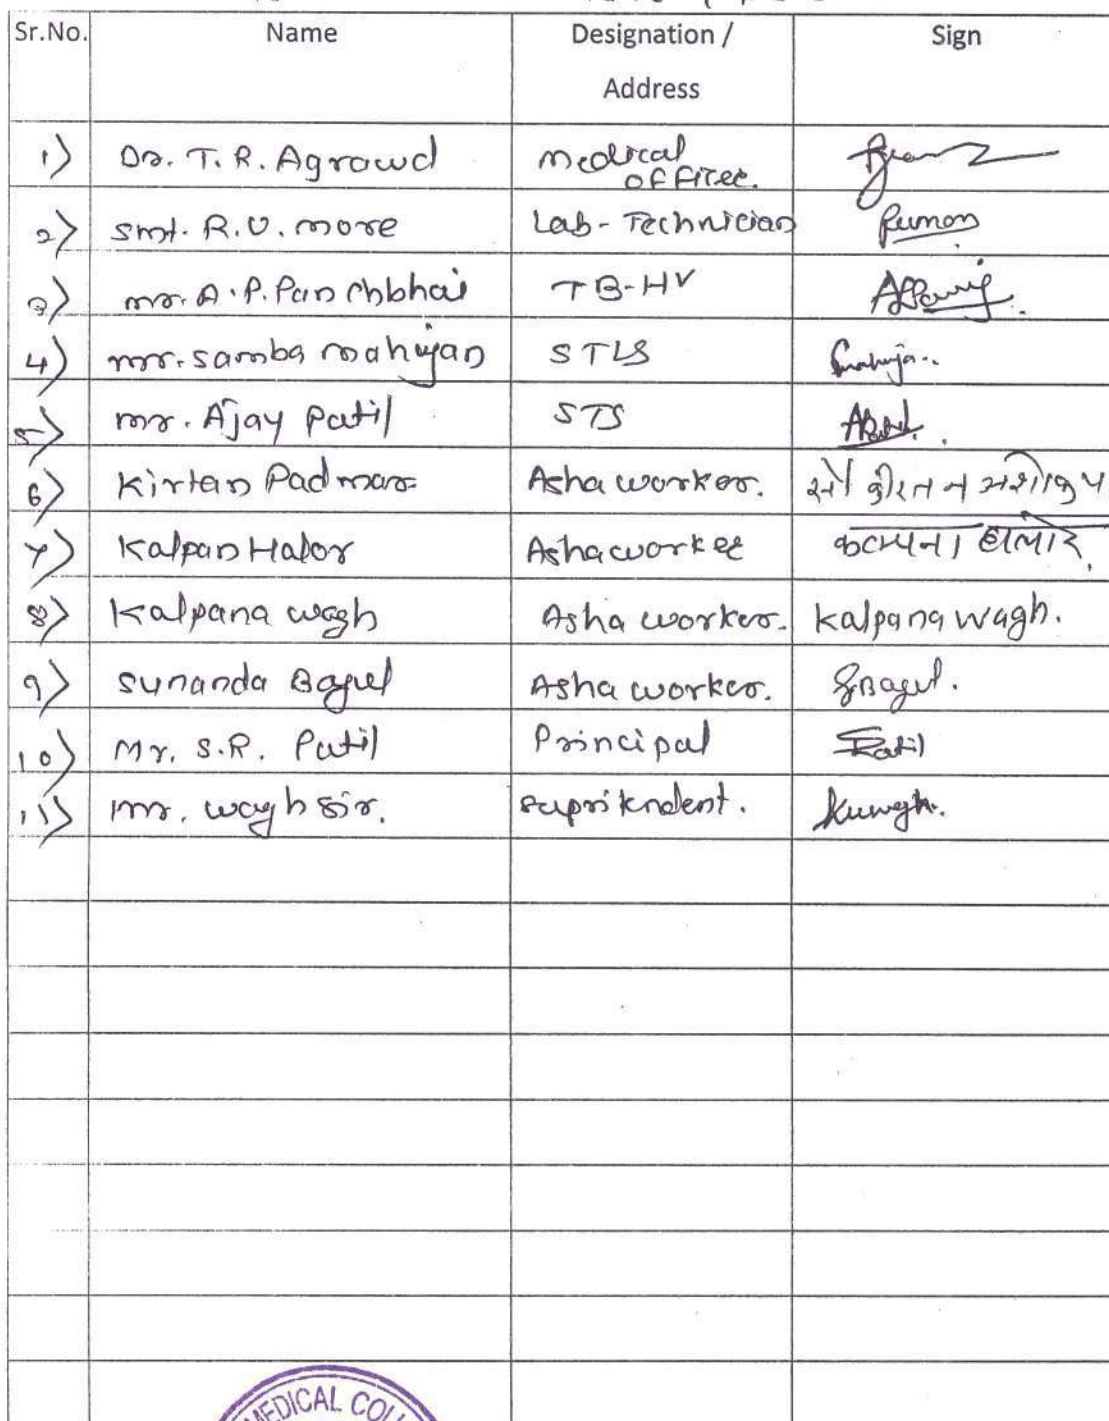 Sr.No. Name Designation / Sign
Address
1) Dr. T. R. Agrawd medical
officer.
2) smt. R.U. more Lab-Technician
3) mr. A.P. Panchbhai TB-HV
4) mr. samba mahajan STLS
5) mr. Ajay patil STS
6) Kirtan Padmar Asha worker.
7) Kalpan Halor Asha worker कल्पना हालोर
8) Kalpana wagh Asha worker. Kalpana wagh.
9) sunanda Bagul Asha worker. SBagul.
10) Mr. S.R. Patil Principal SRatil
11) mr. wagh sir. supritendent. Kuwgh.
MEDICAL COLL